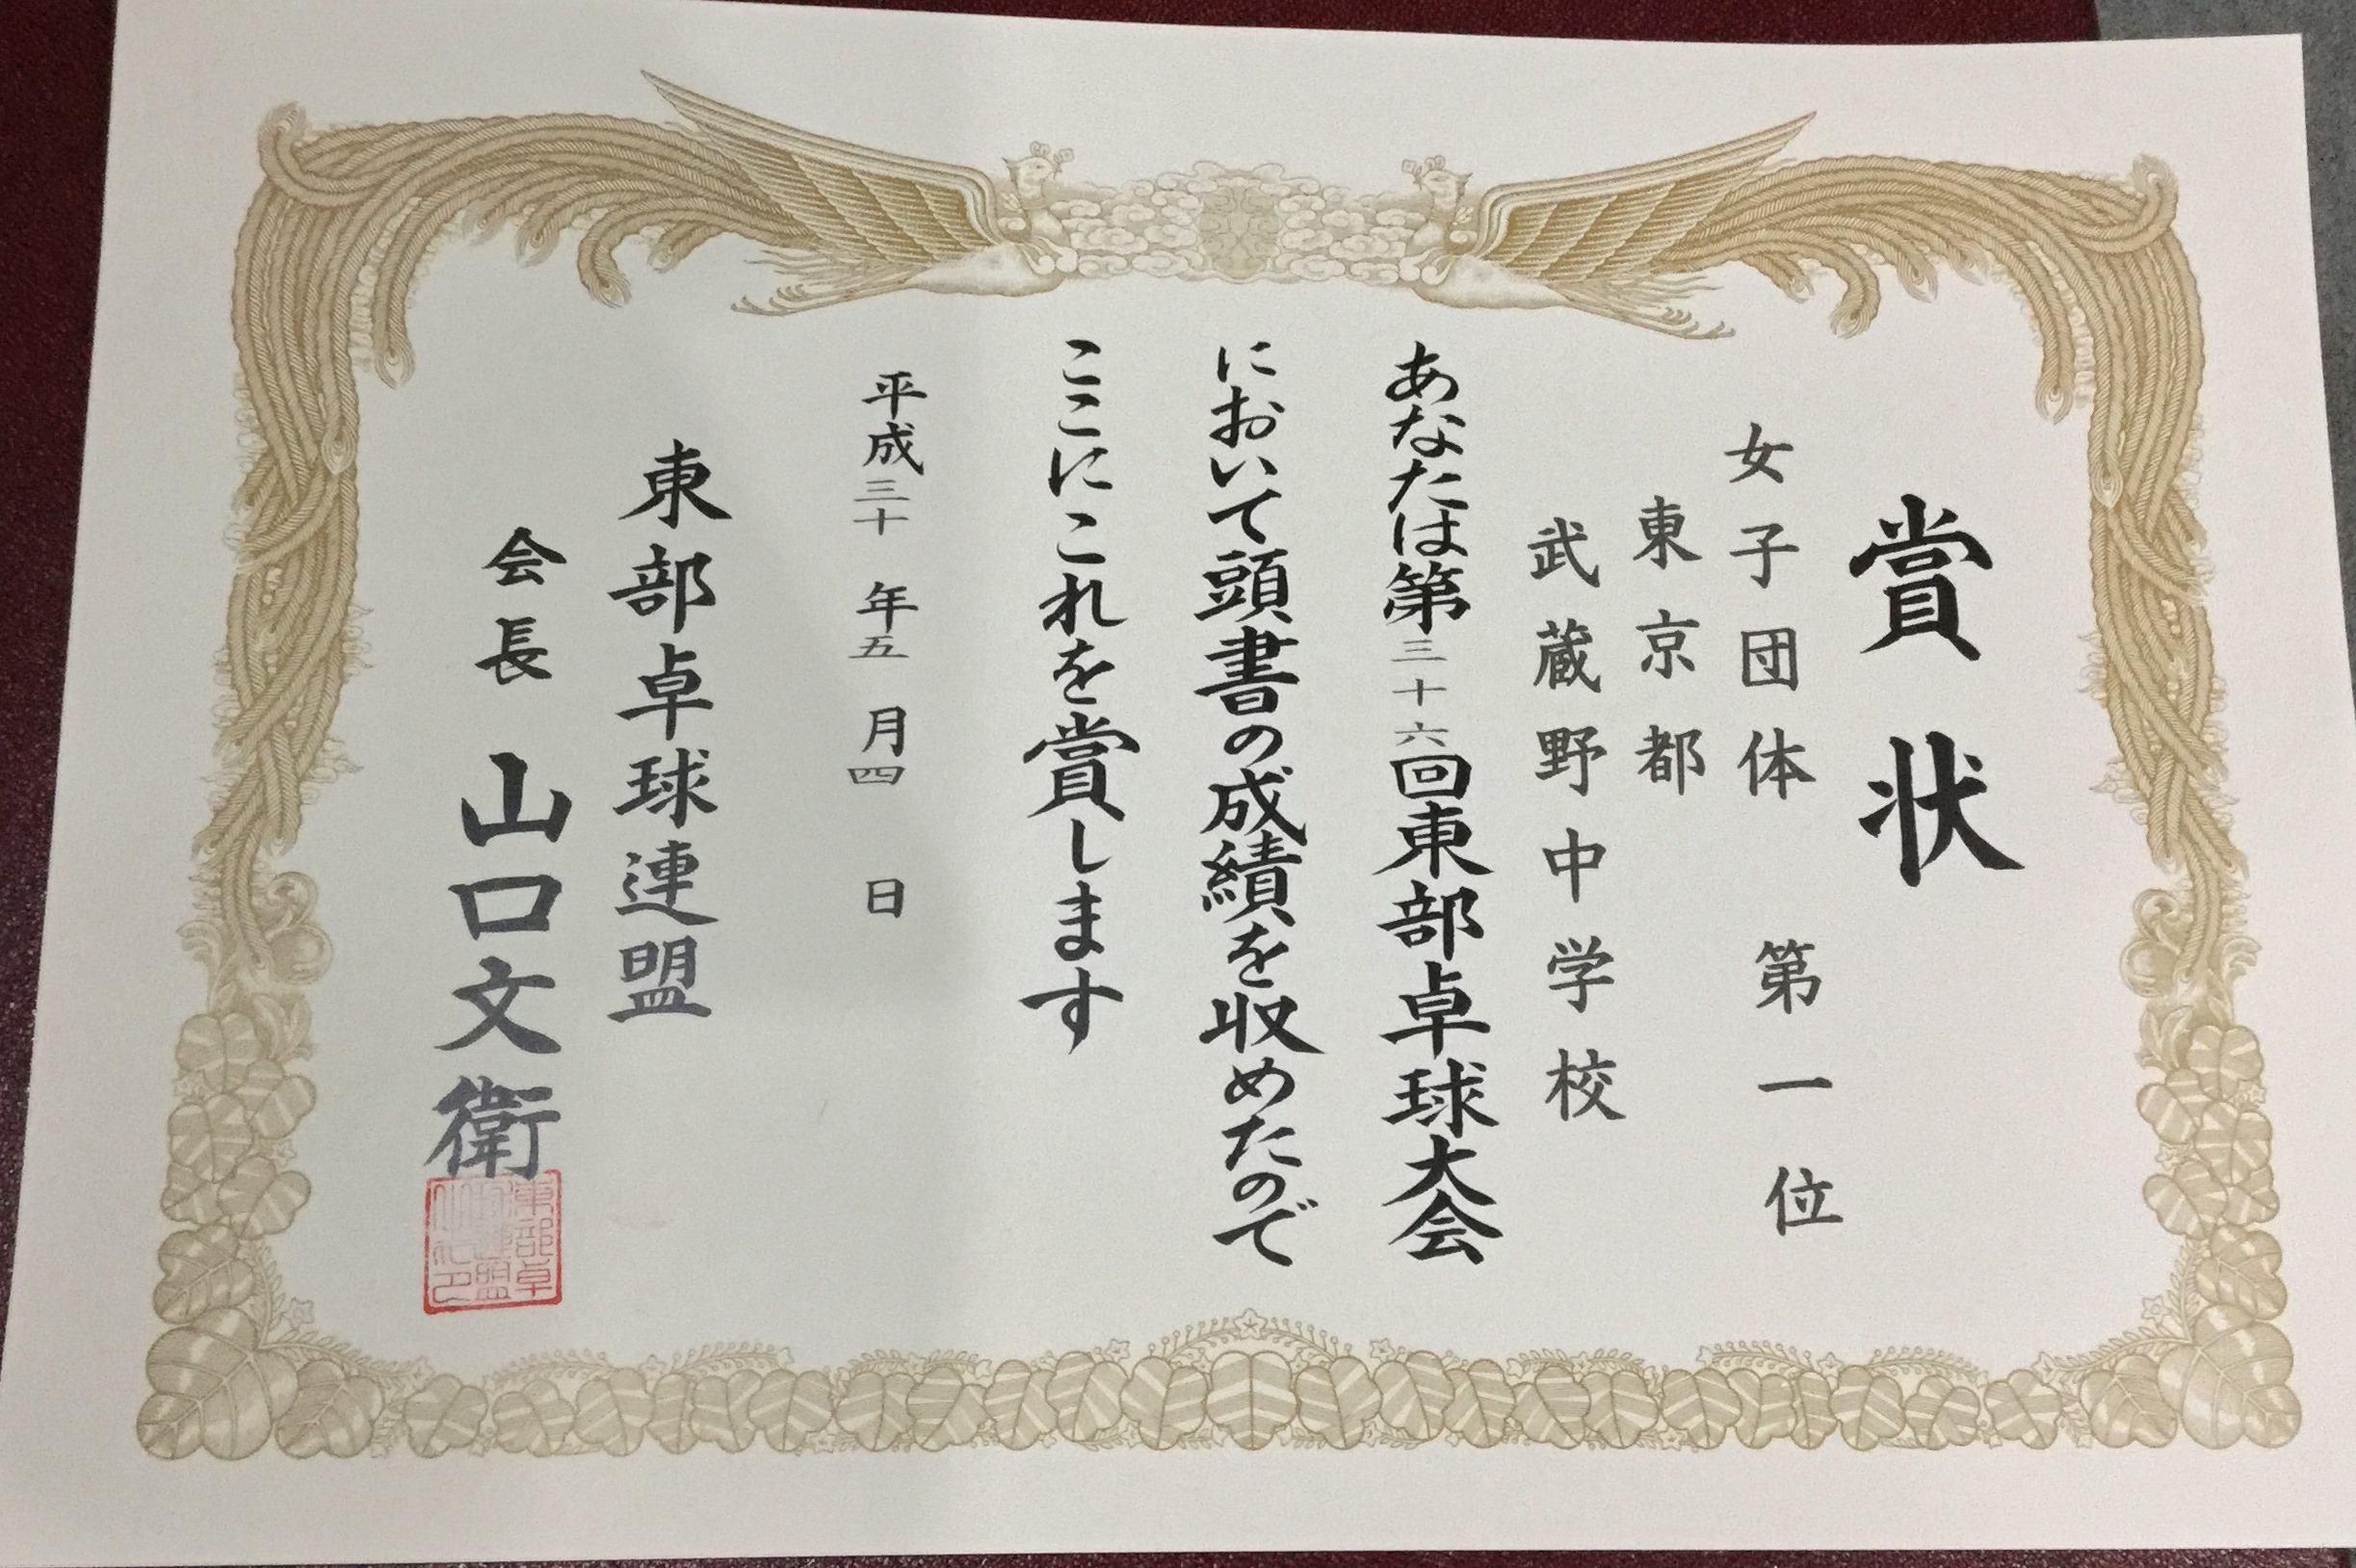 賞状
女子団体 第一位
東京都
武蔵野中学校
あなたは第三十六回東部卓球大会
において頭書の成績を収めたので
ここにこれを賞します
平成三十年五月四日
東部卓球連盟
会長 山口文衛